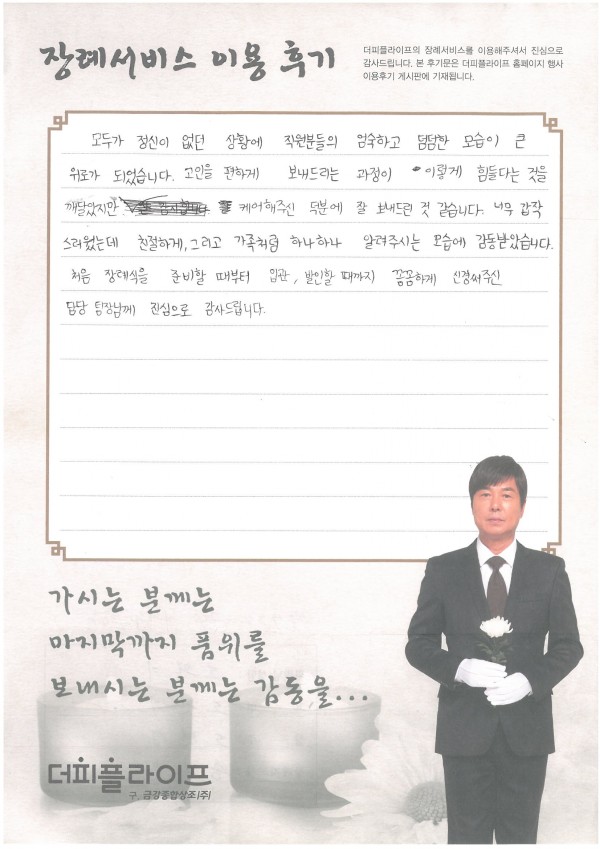 장례서비스 이용 후기
더피플라이프의 장례서비스를 이용해주셔서 진심으로
감사드립니다. 본 후기문은 더피플라이프 홈페이지 행사
이용후기 게시판에 기재됩니다.
모두가 정신이 없던 상황에 직원분들의 엄숙하고 덤덤한 모습이 큰
위로가 되었습니다. 고인을 편하게 보내드리는 과정이 이렇게 힘들다는 것을
깨달았지만 케어해주신 덕분에 잘 보내드린 것 같습니다. 너무 갑작
스러웠는데 친절하게, 그리고 가족처럼 하나하나 알려주시는 모습에 감동받았습니다.
처음 장례식을 준비할 때부터 입관, 발인할 때까지 꼼꼼하게 신경써주신
담당 팀장님께 진심으로 감사드립니다.
가시는 분께는
마지막까지 품위를
보내시는 분께는 감동을...
더피플라이프
구. 금강종합상조(주)